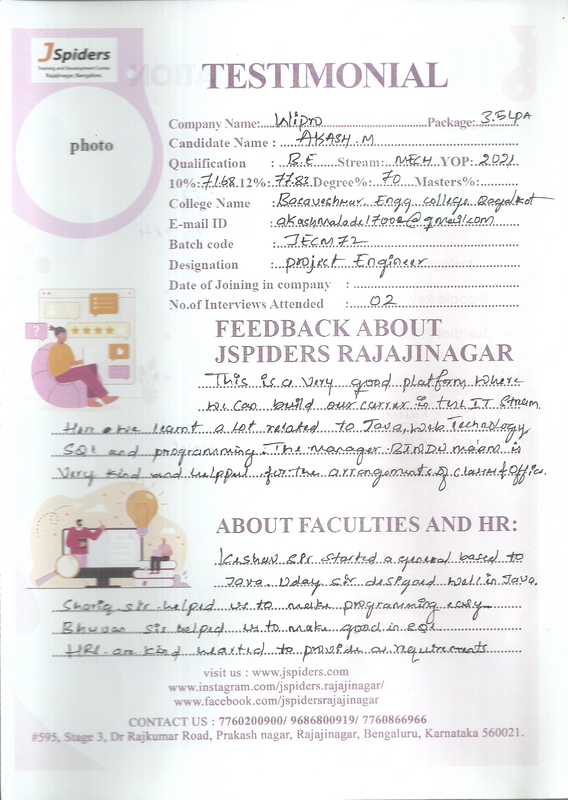 JSpiders
Training and Development Center
Rajajinagar, Bengaluru
TESTIMONIAL
photo
Company Name: Wipro Package: 3.5 LPA
Candidate Name : AKASH.M
Qualification : B.E Stream: MECH YOP: 2021
10%: 71.68 12%: 77.83 Degree%: 70 Masters%:
College Name : Basaveshwar Engg college Bagalkot
E-mail ID : @gmail.com
Batch code : JECM72
Designation : project Engineer
Date of Joining in company :
No.of Interviews Attended : 02
FEEDBACK ABOUT
JSPIDERS RAJAJINAGAR
This is a very good platform where
we can build our carrer in the IT Stream.
Here we learnt a lot related to Java, Web Technology
SQL and programming. The manager BINDU ma'am is
Very kind and helpful for the arrangements of classes & office.
ABOUT FACULTIES AND HR:
Keshav Sir started a general based to
Java. Uday sir designed well in Java.
Shariq sir helped us to make programming easy
Bhuvan sir helped us to make good in SQL
HRs are kind hearted to provide as requirements
visit us : www.jspiders.com
www.instagram.com/jspiders.rajajinagar/
www.facebook.com/jspidersrajajinagar
CONTACT US : 7760200900/ 9686800919/ 7760866966
#595, Stage 3, Dr Rajkumar Road, Prakash nagar, Rajajinagar, Bengaluru, Karnataka 560021.